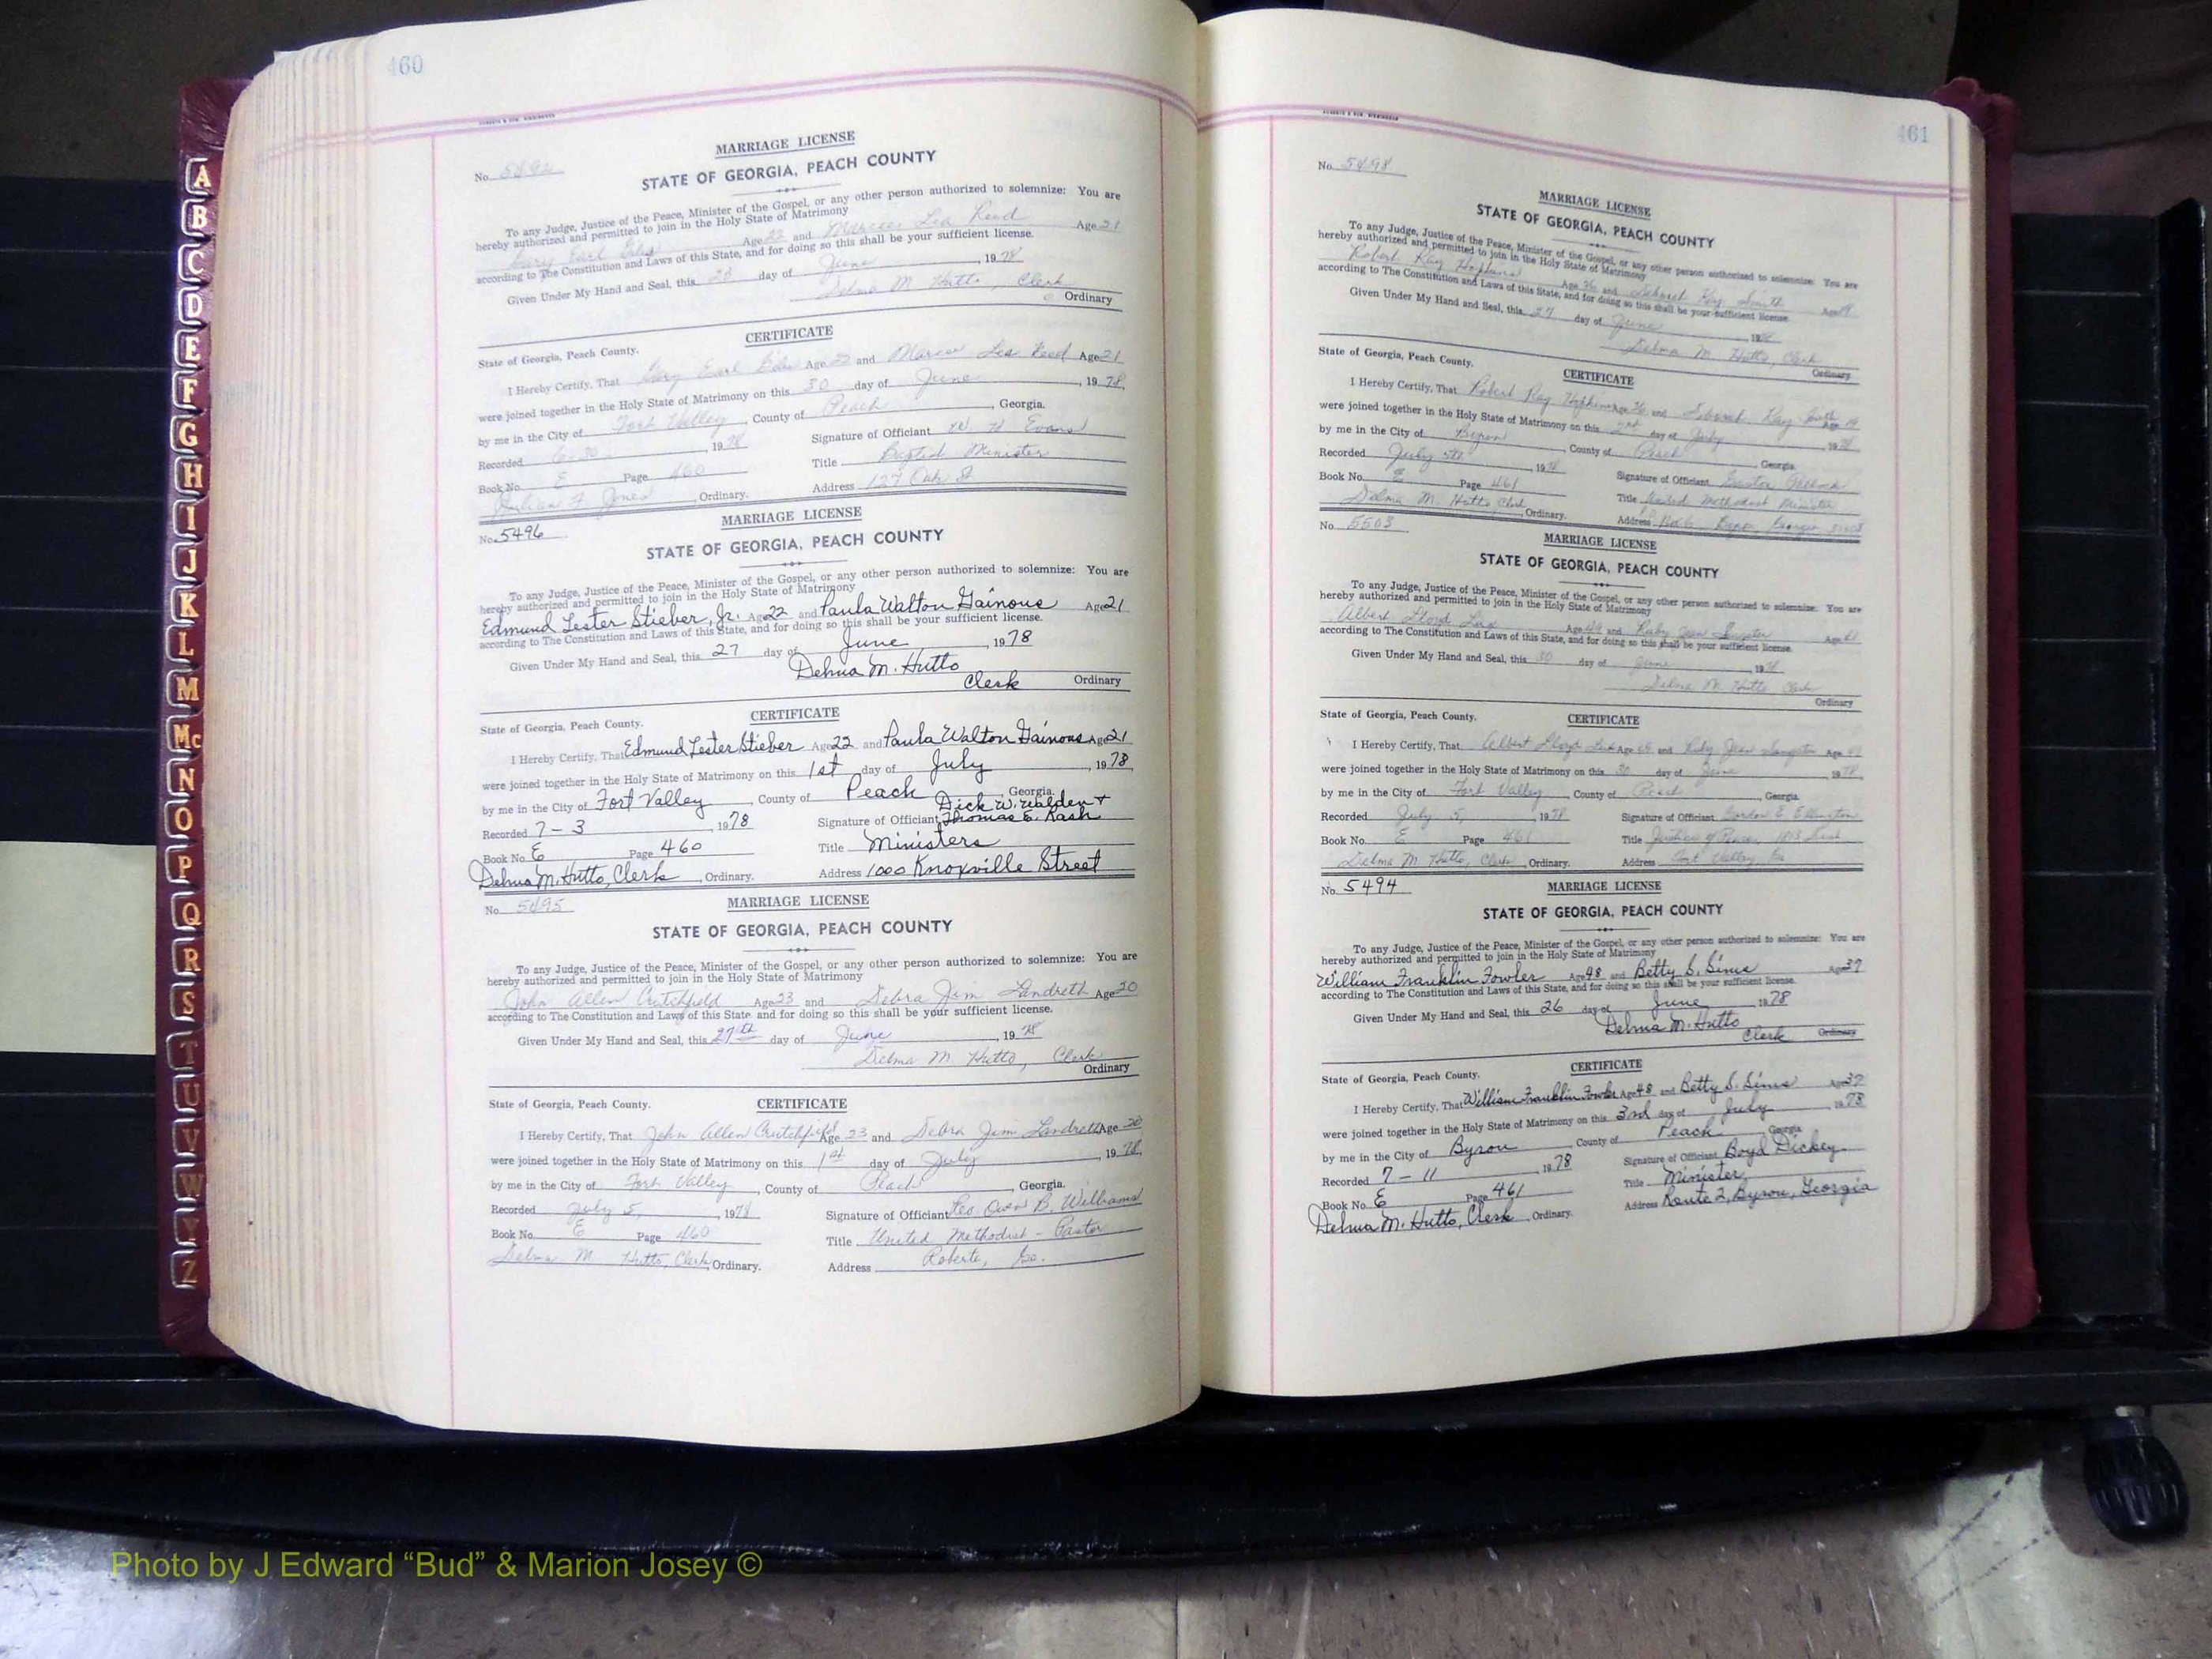 460
MARRIAGE LICENSE
No.
STATE OF GEORGIA, PEACH COUNTY
To any Judge, Justice of the Peace, Minister of the Gospel, or any other person authorized to solemnize: You are
hereby authorized and permitted to join in the Holy State of Matrimony
Earl Age 22 and Lea Reed Age 21
according to The Constitution and Laws of this State, and for doing so this shall be your sufficient license.
Given Under My Hand and Seal, this day of June, 1978
Delma M. Hutto, Clerk
Ordinary
CERTIFICATE
State of Georgia, Peach County.
I Hereby Certify, That Earl Age 22 and Lea Reed Age 21
were joined together in the Holy State of Matrimony on this 30 day of June, 1978,
by me in the City of Fort Valley, County of Peach, Georgia.
Recorded 6-30-, 1978 Signature of Officiant Evans
Book No. E Page 460 Title Baptist Minister
Jones, Ordinary. Address 127 Oak St
No. 5496
MARRIAGE LICENSE
STATE OF GEORGIA, PEACH COUNTY
To any Judge, Justice of the Peace, Minister of the Gospel, or any other person authorized to solemnize: You are
hereby authorized and permitted to join in the Holy State of Matrimony
Edmund Lester Stieber, Jr. Age 22 and Paula Walton Gainous Age 21
according to The Constitution and Laws of this State, and for doing so this shall be your sufficient license.
Given Under My Hand and Seal, this 27 day of June, 1978
Delma M. Hutto
Clerk Ordinary
CERTIFICATE
State of Georgia, Peach County.
I Hereby Certify, That Edmund Lester Stieber Age 22 and Paula Walton Gainous Age 21
were joined together in the Holy State of Matrimony on this 1st day of July, 1978,
by me in the City of Fort Valley, County of Peach, Georgia.
Dick W. Walden +
Recorded 7-3, 1978 Signature of Officiant Thomas E. Kash
Book No. E Page 460 Title Ministers
Delma M. Hutto, Clerk, Ordinary. Address 1000 Knoxville Street
No. 5495
MARRIAGE LICENSE
STATE OF GEORGIA, PEACH COUNTY
To any Judge, Justice of the Peace, Minister of the Gospel, or any other person authorized to solemnize: You are
hereby authorized and permitted to join in the Holy State of Matrimony
John Allen Crutchfield Age 23 and Debra Jim Landreth Age 20
according to The Constitution and Laws of this State, and for doing so this shall be your sufficient license.
Given Under My Hand and Seal, this 27th day of June, 1978
Delma M. Hutto, Clerk
Ordinary
CERTIFICATE
State of Georgia, Peach County.
I Hereby Certify, That John Allen Crutchfield Age 23 and Debra Jim Landreth Age 20
were joined together in the Holy State of Matrimony on this 1st day of July, 1978,
by me in the City of Fort Valley, County of Peach, Georgia.
Recorded July 5, 1978 Signature of Officiant Owen B. Williams
Book No. E Page 460 Title United Methodist - Pastor
Delma M. Hutto, Clerk, Ordinary. Address Roberta, Ga.
461
No. 5498
MARRIAGE LICENSE
STATE OF GEORGIA, PEACH COUNTY
To any Judge, Justice of the Peace, Minister of the Gospel, or any other person authorized to solemnize: You are
hereby authorized and permitted to join in the Holy State of Matrimony
Robert Ray Hopkins Age and Deborah Kay Smith Age 19
according to The Constitution and Laws of this State, and for doing so this shall be your sufficient license.
Given Under My Hand and Seal, this 27 day of June, 1978
Delma M. Hutto, Clerk
Ordinary
State of Georgia, Peach County.
CERTIFICATE
I Hereby Certify, That Robert Ray Hopkins Age and Deborah Kay Smith Age 19
were joined together in the Holy State of Matrimony on this 2nd day of July, 1978
by me in the City of Byron, County of Peach, Georgia.
Recorded July 5th, 1978 Signature of Officiant
Book No. E Page 461 Title United Methodist Minister
Delma M. Hutto, Clerk, Ordinary. Address Byron, Georgia
No. 5503
MARRIAGE LICENSE
STATE OF GEORGIA, PEACH COUNTY
To any Judge, Justice of the Peace, Minister of the Gospel, or any other person authorized to solemnize: You are
hereby authorized and permitted to join in the Holy State of Matrimony
Albert Lloyd Age and Ruby Jean Age
according to The Constitution and Laws of this State, and for doing so this shall be your sufficient license.
Given Under My Hand and Seal, this 30 day of June, 1978
Delma M. Hutto Clerk
Ordinary
State of Georgia, Peach County.
CERTIFICATE
I Hereby Certify, That Albert Lloyd Age and Ruby Jean Age
were joined together in the Holy State of Matrimony on this 30 day of June, 1978
by me in the City of Fort Valley, County of Peach, Georgia.
Recorded July 5, 1978 Signature of Officiant Gordon E. Ellington
Book No. E Page 461 Title Justice of Peace,
Delma M. Hutto, Clerk, Ordinary. Address Fort Valley, Ga
No. 5494
MARRIAGE LICENSE
STATE OF GEORGIA, PEACH COUNTY
To any Judge, Justice of the Peace, Minister of the Gospel, or any other person authorized to solemnize: You are
hereby authorized and permitted to join in the Holy State of Matrimony
William Franklin Fowler Age 48 and Betty S. Sims Age 37
according to The Constitution and Laws of this State, and for doing so this shall be your sufficient license.
Given Under My Hand and Seal, this 26 day of June, 1978
Delma M. Hutto
Clerk Ordinary
CERTIFICATE
State of Georgia, Peach County.
I Hereby Certify, That William Franklin Fowler Age 48 and Betty S. Sims Age 37
were joined together in the Holy State of Matrimony on this 3rd day of July, 1978
by me in the City of Byron, County of Peach Georgia
Recorded 7-11, 1978 Signature of Officiant Boyd Dickey
Book No. E Page 461 Title Minister
Delma M. Hutto, Clerk, Ordinary. Address Route 2, Byron, Georgia
A
B
C
D
E
F
G
H
I
J
K
L
M
Mc
N
O
P
Q
R
S
T
U
V
W
Y
Z
Photo by J Edward “Bud” & Marion Josey ©